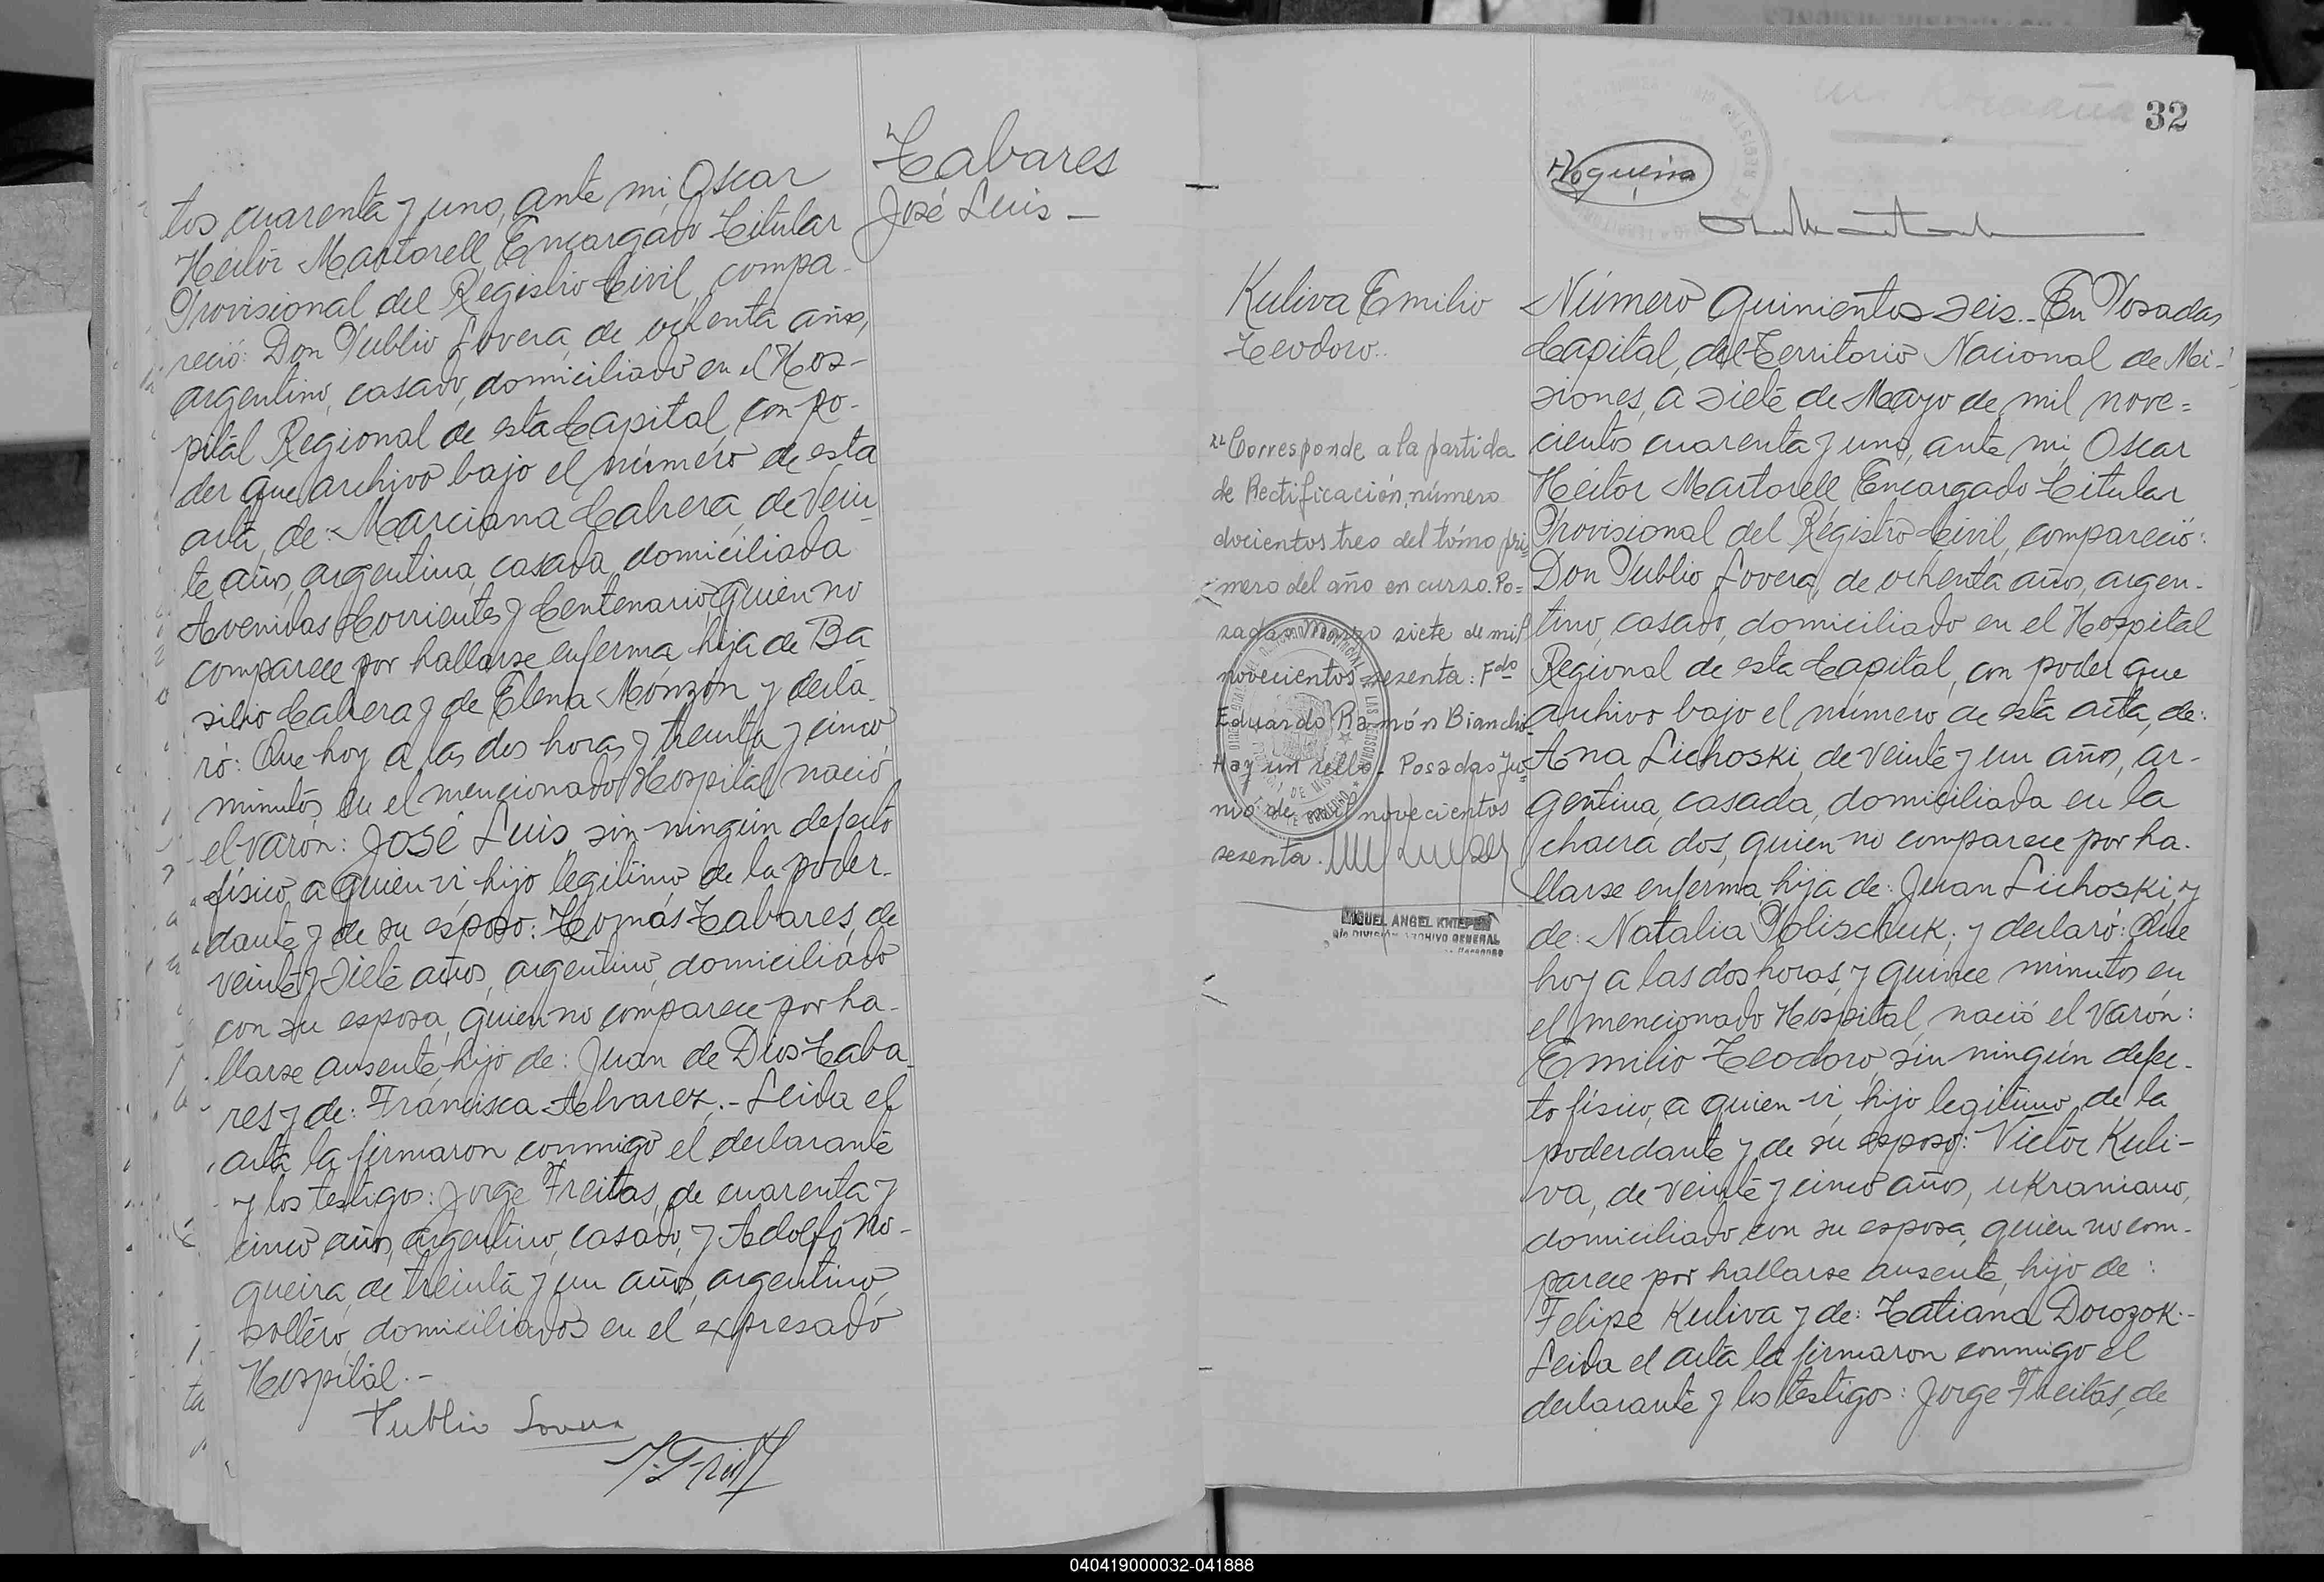 Tabares
José Luis -
tos cuarenta y uno, ante mi, Oscar
Héctor Martorell Encargado Titular
Provisional del Registro Civil, compa-
reció: Don Publio Lovera, de ochenta años,
argentino, casado, domiciliado en el Hos-
pital Regional de esta Capital, con po-
der que archivo bajo el número de esta
acta, de: Marciana Cabrera, de vein
te años, argentina, casada, domiciliada
Avenidas Corrientes y Centenario, quien no
comparece por hallarse enferma, hija de Ba
silio Cabrera y de Elena Monzón y decla-
ró: Que hoy a las dos horas y treinta y cinco
minutos, en el mencionado Hospital nació
el varón: José Luis, sin ningún defecto
físico, a quien vi, hijo legítimo de la poder-
dante y de su esposo: Tomás Tabares, de
veinte y siete años, argentino, domiciliado
con su esposa, quien no comparece por ha-
llarse ausente, hijo de: Juan de Dios Taba
res y de: Francisca Alvarez.- Leida el
acta la firmaron conmigo el declarante
y los testigos: Jorge Freitas, de cuarenta y
cinco años, argentino, casado, y Adolfo No-
gueira, de treinta y un años, argentino,
soltero, domiciliados en el expresado
Hospital.-
Publio Lovera
32
Nogueira
Kuliva Emilio
Teodoro..
Corresponde a la partida
de Rectificación, número
docientos tres del tómo pri-
mero del año en curso. Po=
sadas Marzo siete de mil
novecientos sesenta: Fdo
Eduardo Ramón Bianchi
Hay un sello - Posadas Ju-
nio de mil novecientos
sesenta.
MIGUEL ANGEL KNIEPER
DIVISIÓN ARCHIVO GENERAL
Número quinientos seis.- En Posadas,
Capital, del Territorio Nacional de Mi-
siones, a siete de Mayo de mil nove=
cientos cuarenta y uno, ante mi, Oscar
Héctor Martorell Encargado Titular
Provisional del Registro Civil, compareció:
Don Publio Lovera, de ochenta años, argen-
tino, casado, domiciliado en el Hospital
Regional de esta Capital, con poder que
archivo bajo el número de esta acta, de:
Ana Lichoski, de veinte y un año, ar-
gentina, casada, domiciliada en la
chacra dos, quien no comparece por ha-
llarse enferma, hija de: Juan Lichoski, y
de: Natalia Polischuk; y declaró: Que
hoy a las dos horas, y quince minutos, en
el mencionado Hospital, nació el varón:
Emilio Teodoro, sin ningún defec-
to físico, a quien vi, hijo legítimo, de la
poderdante y de su esposo: Victor Kuli-
va, de veinte y cinco años, ukraniano,
domiciliado con su esposa, quien no com-
parece por hallarse ausente, hijo de:
Felipe Kuliva y de: Tatiana Dorozok.-
Leida el acta la firmaron conmigo el
declarante y los testigos: Jorge Freitas, de
040419000032-041888